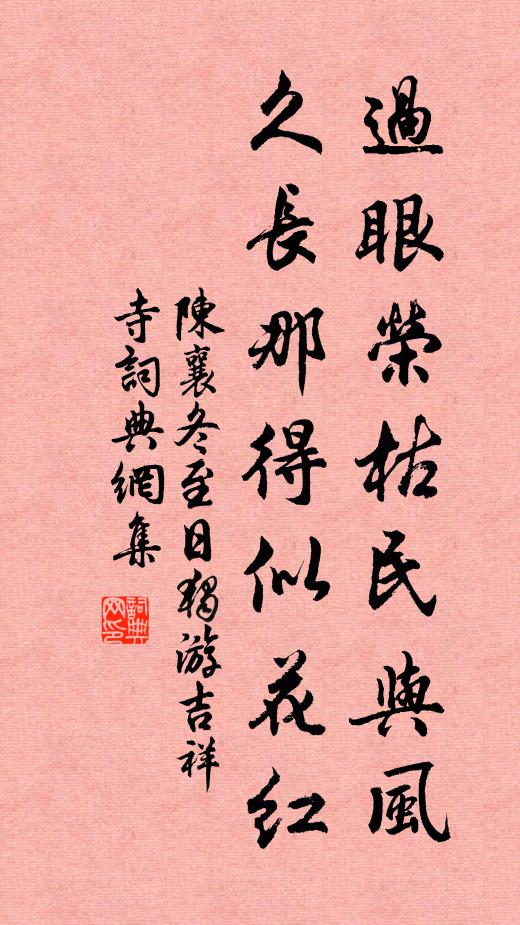 過眼榮枯民與風
久長那得似花紅
陳襄冬至日獨游吉祥
寺詞典網集
詞典
网印